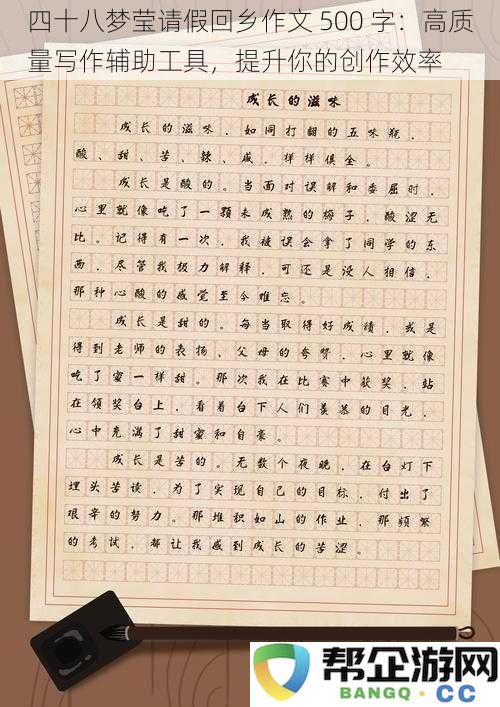 四十八梦莹请假回乡作文 500 字：高质
量写作辅助工具，提升你的创作效率
成长的滋味
成长的滋味，如同打翻的五味瓶，
酸、甜、苦、辣、咸，样样俱全。
成长是酸的。当面对误解和委屈时，
心里就像吃了一颗未成熟的梅子，酸涩无
比。记得有一次，我被误会拿了同学的东
西，尽管我极力解释，可还是没人相信，
那种心酸的感觉至今难忘。
成长是甜的。每当取得好成绩，或是
得到老师的表扬、父母的夸赞，心里就像
吃了蜜一样甜。那次我在比赛中获奖，站
在领奖台上，看着台下人们羡慕的目光，
心中充满了甜蜜和自豪。
成长是苦的。无数个夜晚，在台灯下
埋头苦读，为了实现自己的目标，付出了
艰辛的努力。那堆积如山的作业，那频繁
的考试，都让我感到成长的苦涩。
帮企游网
BANGQ.CC